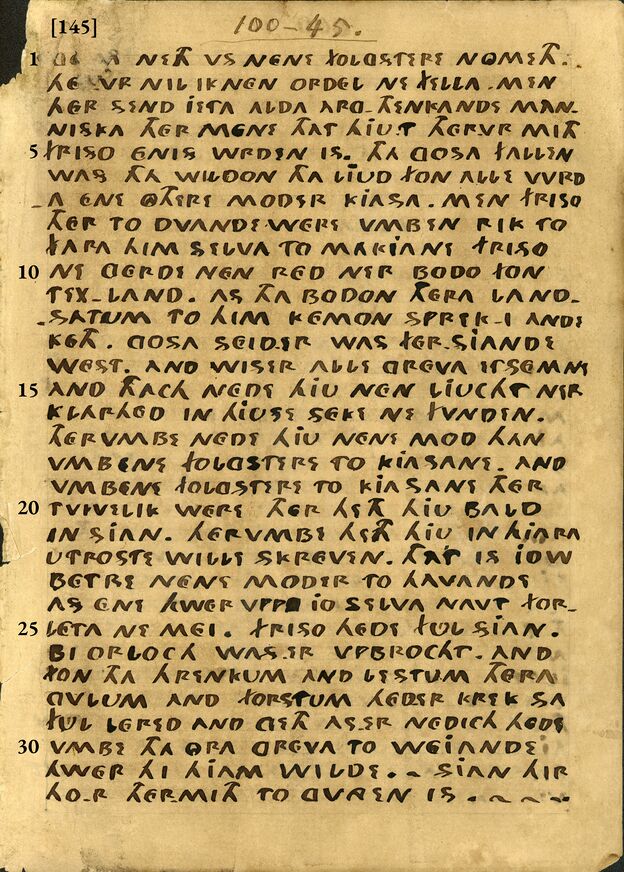 [145] 100-45.
NETH VS NENE FOLGSTERE NOMETH.
HERVR NIL IK NEN ORDEL NE FELLA. MEN
HER SEND IETA ALDA ARG-THENKANDE MAN-
NISKA THER MENE THAT HIU.T THERVR MITH
5 FRISO ENIS WRDEN IS. THA GOSA FALLEN
WAS THA WILDON THA LIUD FON ALLE VVRD
-A ENE OTHERE MODER KIASA. MEN FRISO
THER TO DVANDE WERE VMBEN RIK TO
FARA HIM SELVA TO MAKIANE FRISO
10 NE GERDE NEN RED NER BODO FON
TEX-LAND. AS THA BODON THERA LAND-
-SATUM TO HIM KEMON SPREK-I ANDE
KETH. GOSA SEID.ER WAS FER-SIANDE
WEST. AND WISER ALLE GREVA ETSEMNE
15 AND THACH NEDE HIU NEN LIUCHT NER
KLARHED IN HIUSE SEKE NE FUNDEN.
THERVMBE NEDE HIU NENE MOD HAN
VMBENE FOLGSTERE TO KIASANE. AND
VMBENE FOLGSTERE TO KIASANE THER
20 TVIVELIK WERE THER HETH HIU BALD
IN SIAN. HERVMBE HETH HIU IN HIARA
UTROSTE WILLE SKREVEN. THAT IS IOW
BETRE NENE MODER TO HAVANDE
AS ENE HWER VPPA IO SELVA NAVT FOR-
25 LETA NE MEI. FRISO HEDE FUL SIAN.
BI ORLOCH WAS.ER VPBROCHT. AND
FON THA HRENKUM AND LESTUM THERA
GVLUM AND FORSTUM HEDER KREK SA
FUL LERED AND GETH AS.ER NEDICH HEDE
30 VMBE THA ORA GREVA TO WEIANDE
HWER HI HIAM WILDE. SIAN HIR
HO-R THERMITH TO GVNGEN IS.